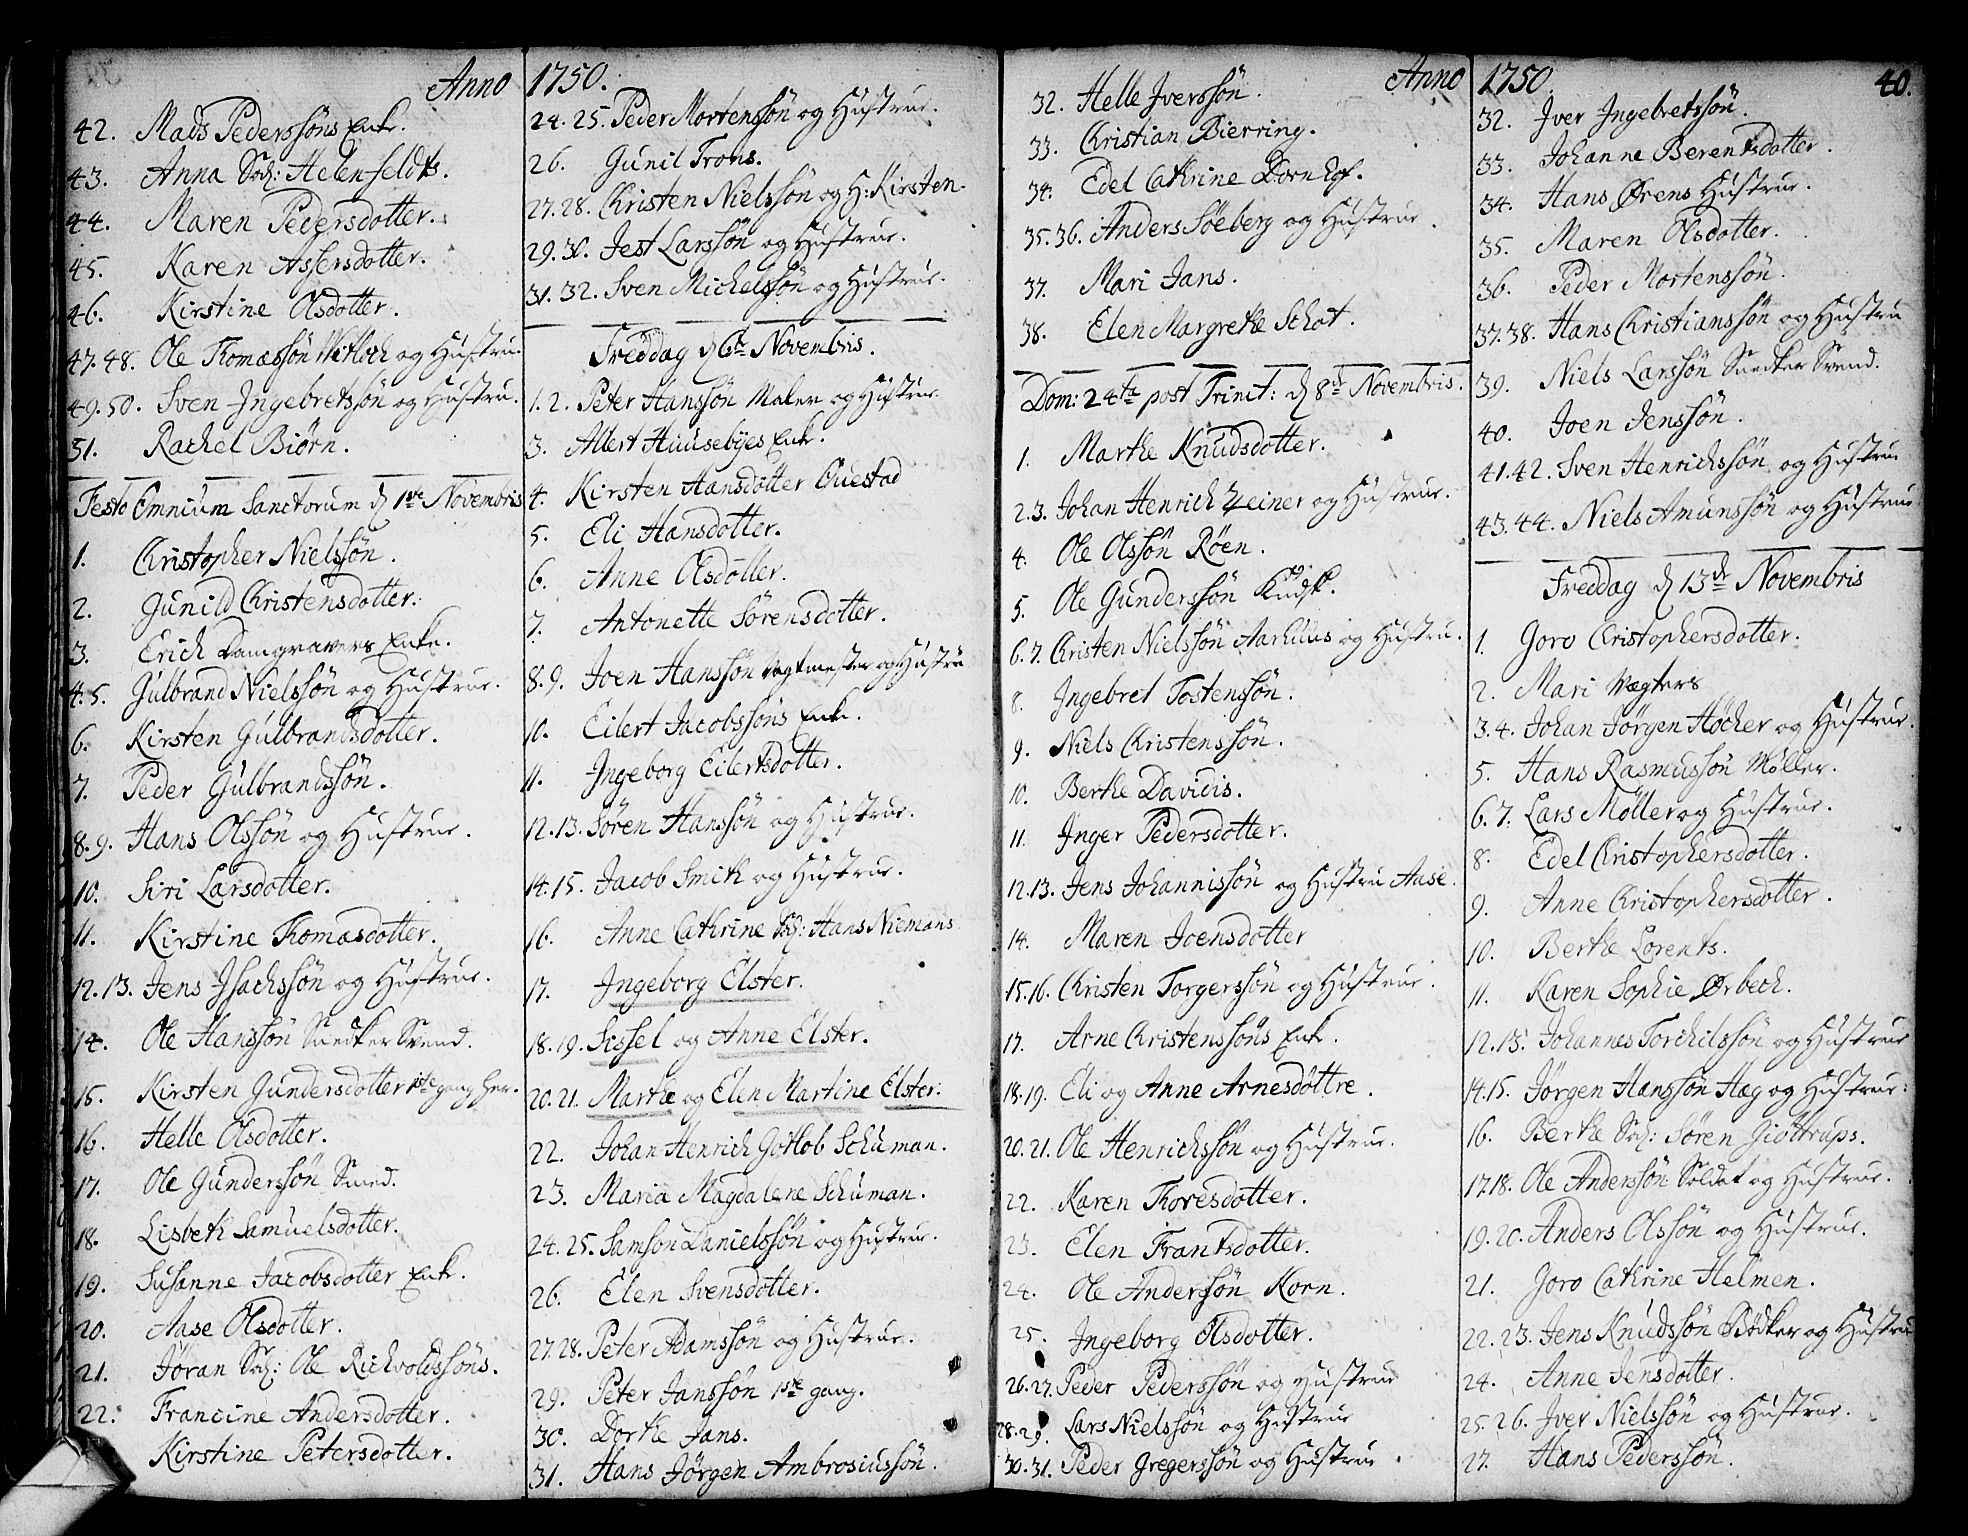 Anno
42. Mads Pederssöns Enke.
43. Anna Sal: Helenfeldts.
44. Maren Pedersdotter.
45. Karen Assersdotter.
46. Kirstine Olsdotter.
47. 48. Ole Thomassön Witloch og Hustrue.
49. 50. Sven Ingebretssön og Hustru.
51. Rachel Biørn.
Festo Omnium Sanctorum d 1ste Novembris
1. Christopher Nielssön.
2. Gunild Christensdotter.
3. Erich Damgravers Enke.
4. 5. Gulbrand Nielssön og Hustrue.
6. Kirsten Gulbrandsdotter.
7. Peder Gulbrandssön.
8. 9. Hans Olssön og Hustrue.
10. Siri Larsdotter.
11. Kirstine Thomasdotter.
12. 13. Jens Isachssön og Hustrue.
14. Ole Hanssön Snedker Svend.
15. Kirsten Gundersdotter 1ste gang her.
16. Helle Olsdotter.
17. Ole Gunderssön Smed.
18. Lisbeth Samuelsdotter.
19. Susanne Jacobsdotter Enke.
20. Aase Olsdotter.
21. Jøran Sal: Ole Richvoldssöns.
22. Francine Andersdotter.
Kirstine Petersdotter.
1750.
24. 25. Peder Mortenssön og Hustrue.
26. Gunil Trons.
27. 28. Christen Nielssön og H: Kirsten.
29. 30. Jest Larssön og Hustrue.
31. 32. Sven Michelssön og Hustrue.
Freddag d 6te Novembris.
1. 2. Peter Hanssön Maler og Hustrue.
3. Allert Huusebyes Enke.
4. Kirsten Hansdotter Questad
5. Eli Hansdotter.
6. Anne Olsdotter.
7. Antonette Sörensdotter.
8. 9. Joen Hanssön Vagtmester og Hustru
10. Eilert Jacobssöns Enke.
11. Ingeborg Eilertsdotter.
12. 13. Sören Hanssön og Hustrue.
14. 15. Jacob Smith og Hustrue.
16. Anne Cathrine Sal: Hans Niemans
17. Ingeborg Elster.
18. 19. Sissel og Anne Elster.
20. 21. Marthe og Elen Martine Elster.
22. Johan Henrich Gotlob Schuman.
23. Maria Magdalene Schuman.
24. 25. Samson Danielssön og Hustrue.
26. Elen Svensdotter.
27. 28. Peter Adamssön og Hustrue.
29. Peter Janssön 1ste gang.
30. Dorthe Jans.
31. Hans Jörgen Ambrosiussön.
Anno
32. Helle Iverssön.
33. Christian Bierring.
34. Edel Cathrine Dorn
35. 36. Anders Söeberg og Hustrue.
37. Mari Jans.
38. Elen Margrethe Schot.
Dom: 24te post Trinit: d 8de Novembris.
1. Marthe Knudsdotter.
2. 3. Johan Henrich Zeiner og Hustrue.
4. Ole Olssön Røen.
5. Ole Gunderssön Kudsk.
6. 7. Christen Nielssön Aarhuus og Hustru.
8. Ingebret Tostenssön.
9. Niels Christenssön.
10. Berthe Davidis.
11. Inger Pedersdotter.
12. 13. Jens Johannissön og Hustru Aase.
14. Maren Joensdotter
15. 16. Christen Torgerssön og Hustrue.
17. Arne Christenssöns Enke.
18. 19. Eli og Anne Arnesdöttre.
20. 21. Ole Henrichssön og Hustrue.
22. Karen Thoresdotter.
23. Elen Frantsdotter.
24. Ole Anderssön Korn.
25. Ingeborg Olsdotter.
26. 27. Peder Pederssön og Hustrue
28. 29. Lars Nielssön og Hustrue
30. 31. Peder Gregerssön og Hustrue
1750. 40.
32. Iver Ingebretssön.
33. Johanne Berentsdotter.
34. Hans Ørens Hustrue.
35. Maren Olsdotter.
36. Peder Mortenssön.
37. 38. Hans Christianssön og Hustru
39. Niels Larssön Snedker Svend.
40. Joen Jenssön.
41. 42. Sven Henrichssön og Hustrue
43. 44. Niels Amunssön og Hustrue
Freddag d 13de Novembris
1. Joro Christophersdotter.
2. Mari Vægters
3. 4. Johan Jörgen Höcher og Hustrue.
5. Hans Rasmussön Møller.
6. 7. Lars Møller og Hustrue.
8. Edel Christophersdotter.
9. Anne Christophersdotter.
10. Berthe Lorents.
11. Karen Sophie Ørbech.
12. 13. Johannes Torchilssön og Hustrue
14. 15. Jörgen Hanssön Hæg og Hustrue.
16. Berthe Sal: Sören Giöttrups.
17. 18. Ole Anderssön Soldat og Hustrue.
19. 20. Anders Olssön og Hustrue.
21. Joro Cathrine Helmen.
22. 23. Jens Knudssön Bödker og Hustru
24. Anne Jensdotter.
25. 26. Iver Nielssön og Hustrue.
27. Hans Pederssön.